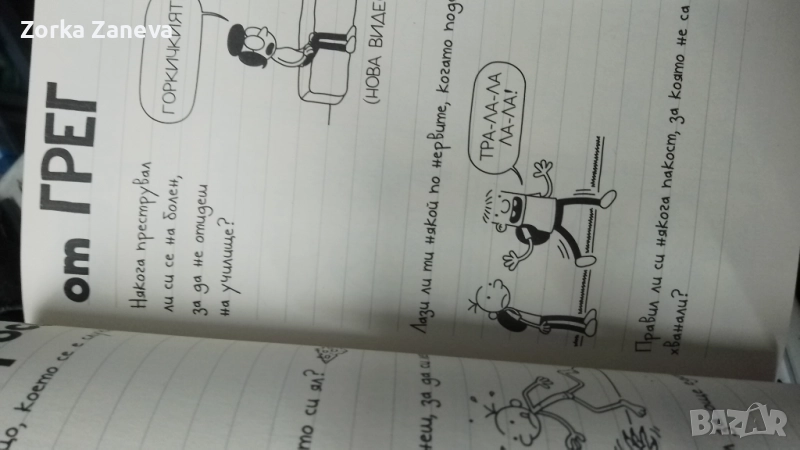 Zorka Zaneva
от ГРЕГ
ГОРКИЧКИЯТ
(НОВА ВИДЕ
Някога преструвал
ли си се на болен,
за да не отидеш
на училище?
Лази ли ти някой по нервите, когато
ТРА-ЛА-ЛА
ЛА-ЛА!
Правил ли си някога пакост, за която не са
хванали?
което се е
то си ял?
за да
BAZAR